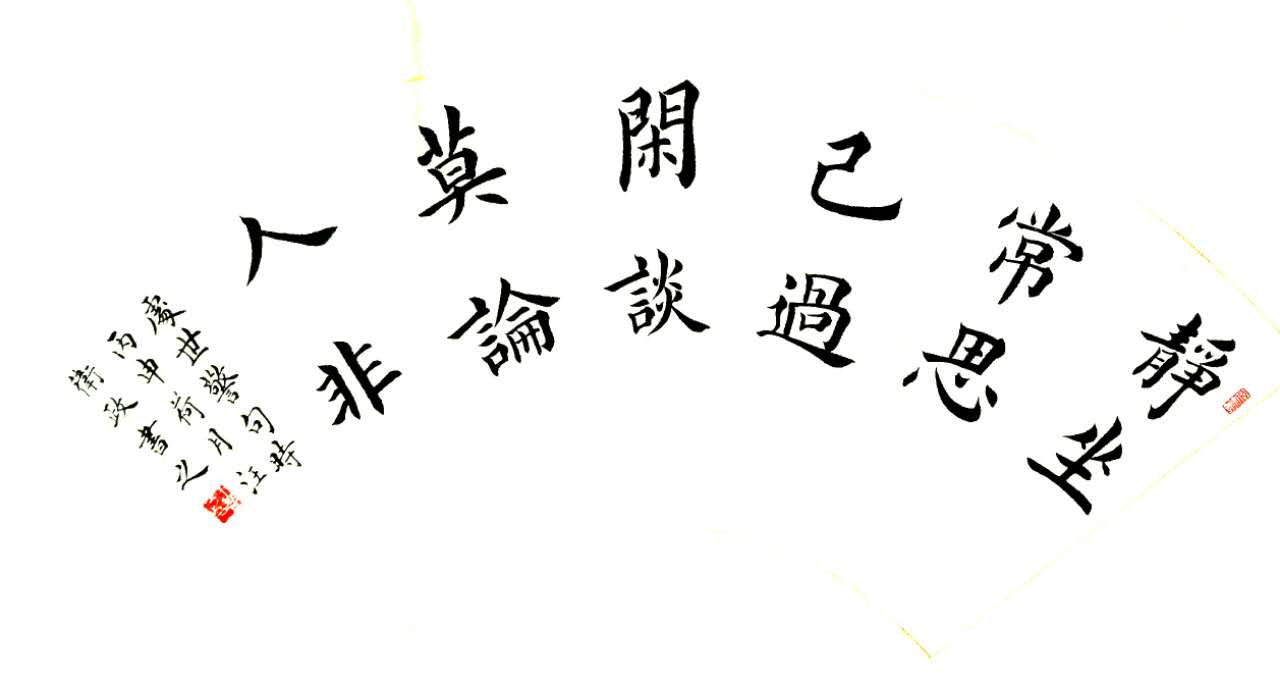 靜坐
常思
己過
閑談
莫論
人非
處世警句時
丙申荷月汪
衛政書之